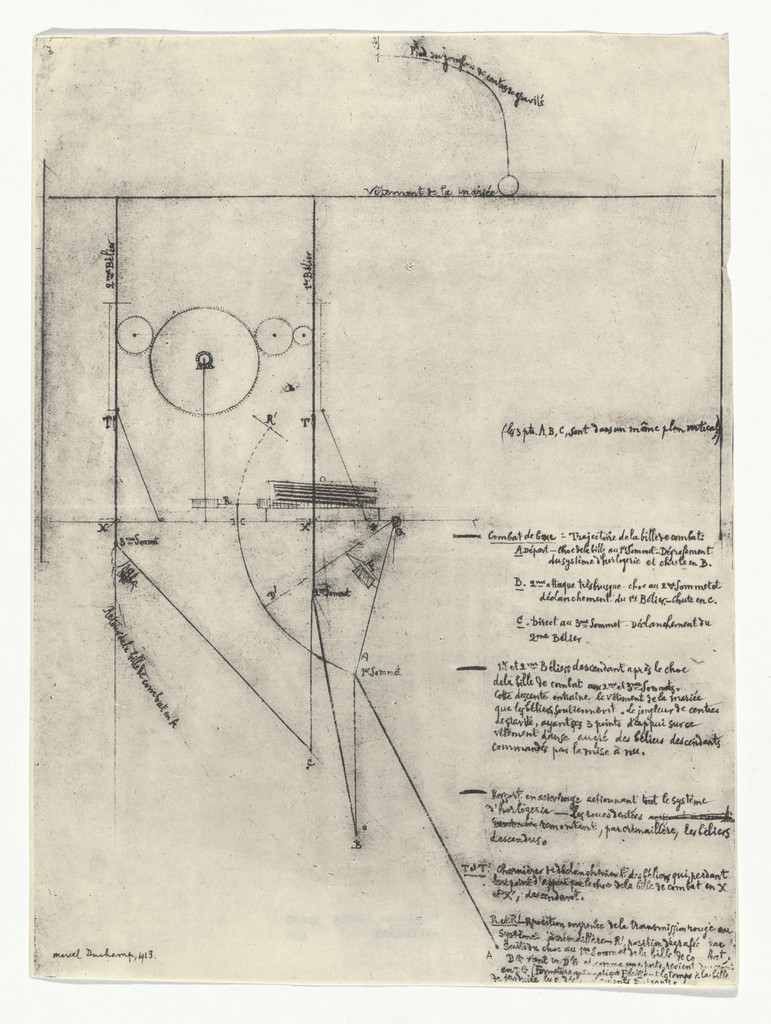 Pied du jongleur de centres de gravité
Vêtement de la mariée
2me Bélier
1er Bélier
R'
T'
T
(les 3 pts. A, B, C, sont dans un même plan vertical)
R
C
X'
X
3me Sommet
D'
2me Sommet
A
1er Sommet
Retour de la bille de combat en A
C
B
A
Combat de boxe = Trajectoire de la bille de combat:
A. Départ - choc de la bille au 1er Sommet - Dégrafement
du système d'horlogerie et chute en B.
B. 2me attaque très brusque - choc au 2me Sommet et
déclanchement du 1er Bélier - Chute en C.
C. Direct au 3me Sommet - Déclanchement du
2me Bélier
1er et 2me Béliers descendant après le choc
de la bille de combat aux 2me et 3me Sommets.
Cette descente entraîne le vêtement de la mariée
que les béliers soutiennent. Le jongleur de centres
de gravité, ayant ses 3 points d'appui sur ce
vêtement danse au gré des béliers descendants
commandés par la mise à nu.
Ressort en acier rouge actionnant tout le système
d'horlogerie - Les roues dentées
remontent, par crémaillère, les béliers
descendus.
T et T' Charnières de déclanchement des béliers qui, perdant
leur point d'appui par le choc de la bille de combat en X
et X', descendent.
R et R' - Position engrenée de la transmission rouge au
système crémaillère - R', position dégrafée par
suite du choc au 1er Sommet de la bille de combat.
vient en et comme une porte, revient
en
marcel Duchamp, 1913.